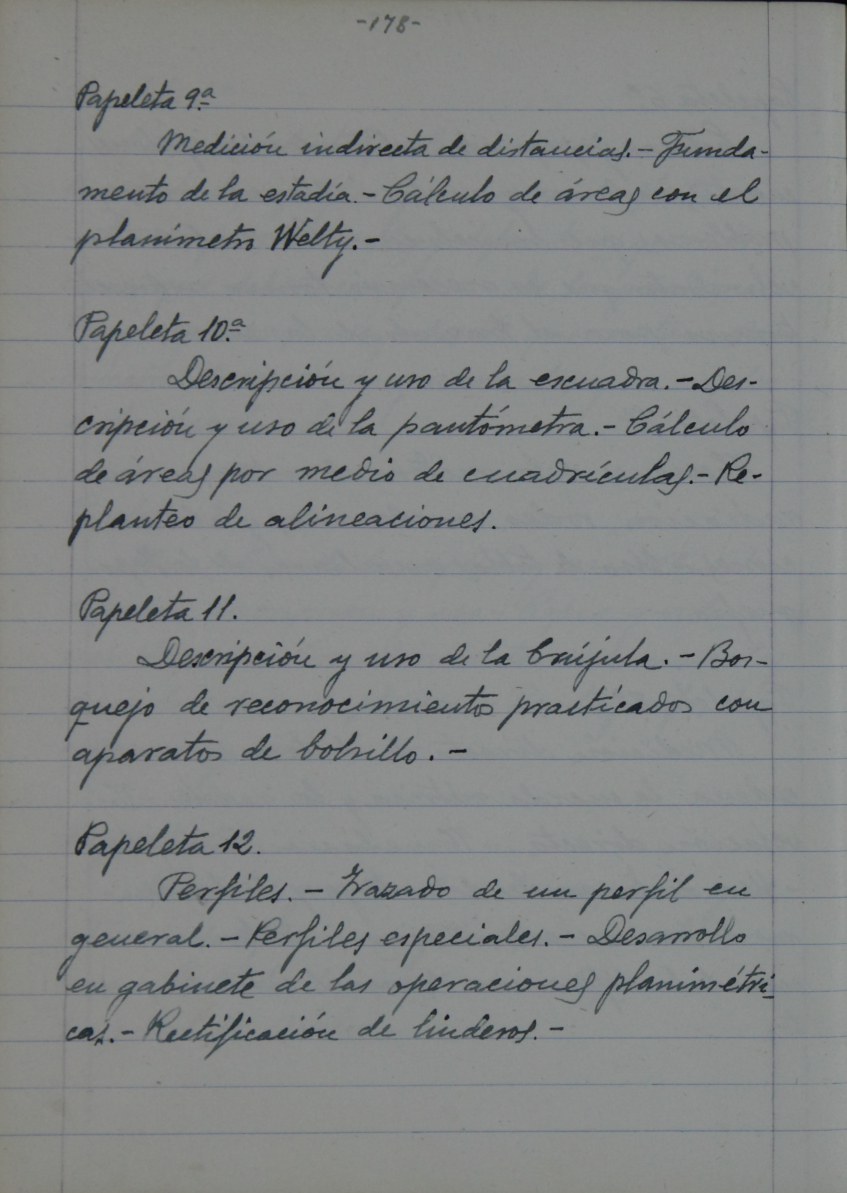 -178-
Papeleta 9.ª
Medición indirecta de distancias.- Funda-
mento de la estadía.- Cálculo de áreas con el
planímetro Welty.-
Papeleta 10.ª
Descripción y uso de la escuadra.- Des-
cripción y uso de la pantómetra.- Cálculo
de áreas por medio de cuadrículas.- Re-
planteo de alineaciones.
Papeleta 11.
Descripción y uso de la brújula.- Bos-
quejo de reconocimientos practicados con
aparatos de bolsillo.-
Papeleta 12.
Perfiles.- Trazado de un perfil en
general.- Perfiles especiales.- Desarrollo
en gabinete de las operaciones planimétri-
cas.- Rectificación de linderos.-